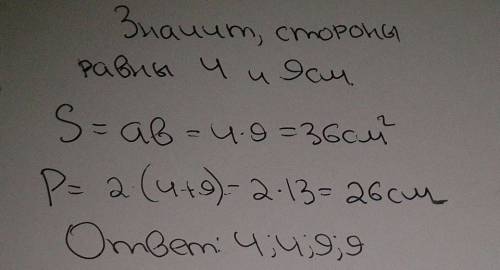 Значит, стороны
равны 4 и 9см.
S = ав = 4·9 = 36см²
P = 2·(4+9) = 2·13 = 26см
Ответ: 4; 4; 9; 9